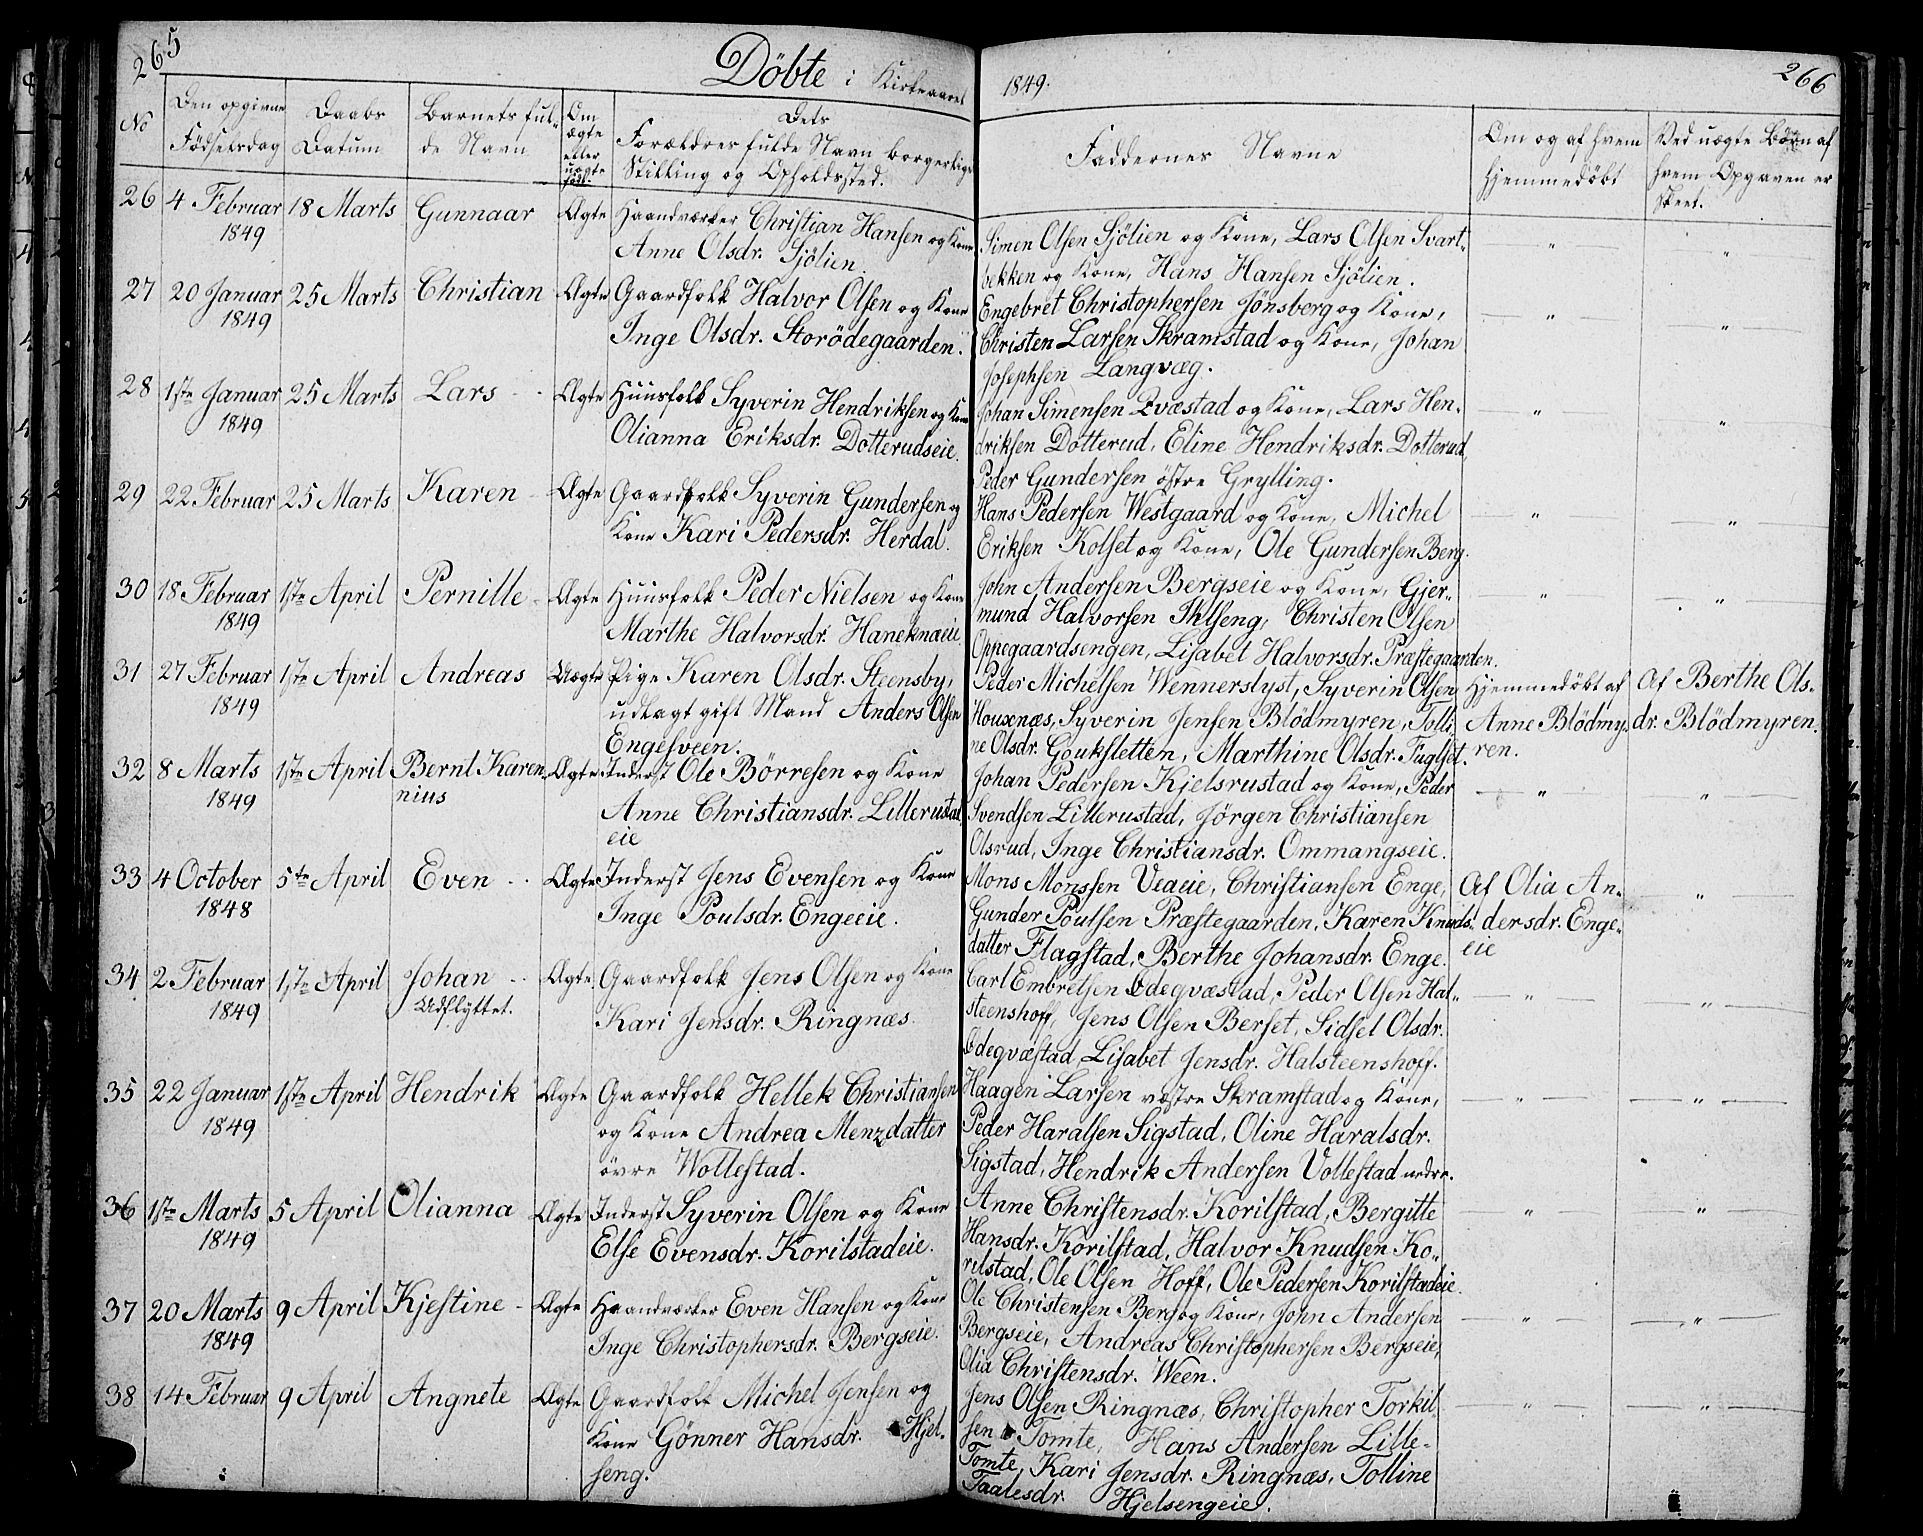 265
Döbte i Kirkeaaret
1849.
266
No
Den opgivne Födselsdag
Daabs Datum
Barnets fulde Navn
Om ægte eller uægte född.
Dets Forældres fulde Navn borgerlige Stilling og Opholdssted.
Faddernes Navne
Om og af hvem hjemmedöbt
Ved uægte Börn af hvem Opgaven er skeet.
26 4 Februar 18 Marts Gunnaar Ægte Haandværker Christian Hansen og Kone
1849 Anne Olsdr. Sjölien.
Simen Olsen Sjölien og Kone, Lars Olsen Svart-
bekken og Kone, Hans Hansen Sjölien.
27 20 Januar 25 Marts Christian Ægte Gaardfolk Halvor Olsen og Kone
1849 Inge Olsdr. Storödegaarden.
Engebret Christophersen Jönsberg og Kone,
Christen Larsen Skramstad og Kone, Johan
Josephsen Langvæg.
28 1ste Januar 25 Marts Lars Ægte Huusfolk Syverin Hendriksen og Kone
1849 Olianna Eriksdr. Dotterudseie.
Johan Simensen Qvæstad og Kone, Lars Hen-
driksen Dotterud, Eline Hendriksdr. Dotterud,
Peder Gundersen östre Grylling.
29 22 Februar 25 Marts Karen Ægte Gaardfolk Syverin Gundersen og
Kone Kari Pedersdr. Herdal.
Hans Pedersen Westgaard og Kone, Michel
Eriksen Kolset og Kone, Ole Gundersen Berg.
30 18 Februar 1ste April Pernille Ægte Huusfolk Peder Nielsen og Kone
1849 Marthe Halvorsdr. Haneknæeie.
John Andersen Bergseie og Kone, Gjer-
mund Halvorsen, Christen Olsen
Oppegaardsengen, Lisabet Halvorsdr. Præstegaarden.
31 27 Februar 1ste April Andreas Uægte Pige Karen Olsdr. Steensby,
1849 udlagt gift Mand Anders Olsen
Engesveen.
Peder Michelsen Wennerslyst, Syverin Olsen
Housenæs, Syverin Jensen Blödmyren, Tolli-
ne Olsdr. Goukstetten, Marthine Olsdr. Fuglset.
Hjemmedöbt af
Anne Blödmy-
ren.
Af Berthe Ols-
dr. Blödmyren.
32 8 Marts 1ste April Bernt Karen- Ægte Inderst Ole Börresen og Kone
1849 nius Anne Christiansdr. Lillerustad
eie
Johan Pedersen Kjelsrustad og Kone, Peder
Svendsen Lillerustad, Jörgen Christiansen
Olsrud, Inge Christiansdr. Ommangseie.
33 4 October 5te April Even Ægte Inderst Jens Evensen og Kone
1848 Inge Poulsdr. Engeeie.
Mons Monssen Veaeie, Christiansen Enge,
Gunder Poulsen Præstegaarden, Karen Knuds-
datter Flagstad, Berthe Johansdr. Enge.
Af Olia An-
dersdr. Enge-
eie
34 2 Februar 1ste April Johan Ægte Gaardfolk Jens Olsen og Kone
1849 Udflyttet. Kari Jensdr. Ringnæs.
Carl Embretsen Ödeqvæstad, Peder Olsen Hal-
steenshoff, Jens Olsen Berset, Sidsel Olsdr.
Ödeqvæstad, Lisabet Jensdr. Halsteenshoff.
35 22 Januar 1ste April Hendrik Ægte Gaardfolk Hellek Christiansen
1849 og Kone Andrea Menzdatter
övre Wollestad.
Haagen Larsen væstre Skramstad og Kone,
Peder Haralsen Sigstad, Oline Haralsdr.
Sigstad, Hendrik Andersen Vollestad nedre.
36 1ste Marts 5 April Olianna Ægte Inderst Syverin Olsen og Kone
1849 Else Evensdr. Korilstadeie.
Anne Christensdr. Korilstad, Bergitte
Hansdr. Korilstad, Halvor Knudsen Ko-
rilstad, Ole Olsen Hoff, Ole Pedersen Korilstadeie.
37 20 Marts 9 April Kjestine Ægte Haandværker Even Hansen og Kone
1849 Inge Christophersdr. Bergseie.
Ole Christensen Berg og Kone, John Andersen
Bergseie, Andreas Christophersen Bergseie,
Olia Christensdr. Ween.
38 14 Februar 9 April Angnete Ægte Gaardfolk Michel Jensen og
Kone Gönner Hansdr. Hjel-
seng.
Jens Olsen Ringnæs, Christopher Torkil-
sen Tomte, Hans Andersen Lille-
Tomte, Kari Jensdr. Ringnæs, Tolline
Taalesdr. Hjelsengeie.